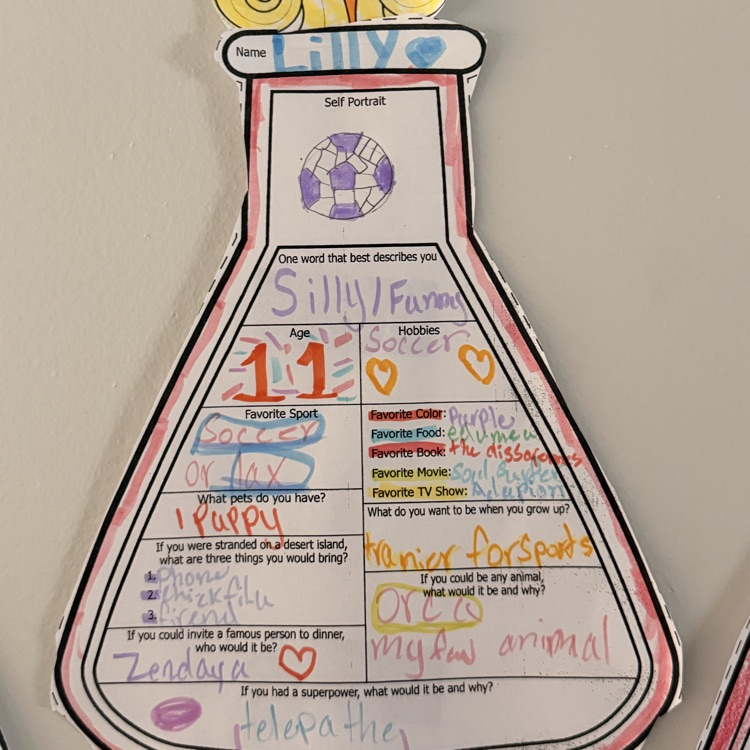 Name Lilly
Self Portrait
One word that best describes you
Silly/Funny
Age
11
Hobbies
Soccer
Favorite Sport
Soccer
or lax
Favorite Color: Purple
Favorite Food: edumeu
Favorite Book: the
Favorite Movie: Soul Surfer
Favorite TV Show:
What pets do you have?
1 Puppy
What do you want to be when you grow up?
tranier for sports
If you were stranded on a desert island,
what are three things you would bring?
1. Phone
2. chickfilu
3. firend
If you could be any animal,
what would it be and why?
Orca
my fav animal
If you could invite a famous person to dinner,
who would it be?
Zendaya
If you had a superpower, what would it be and why?
telepathe